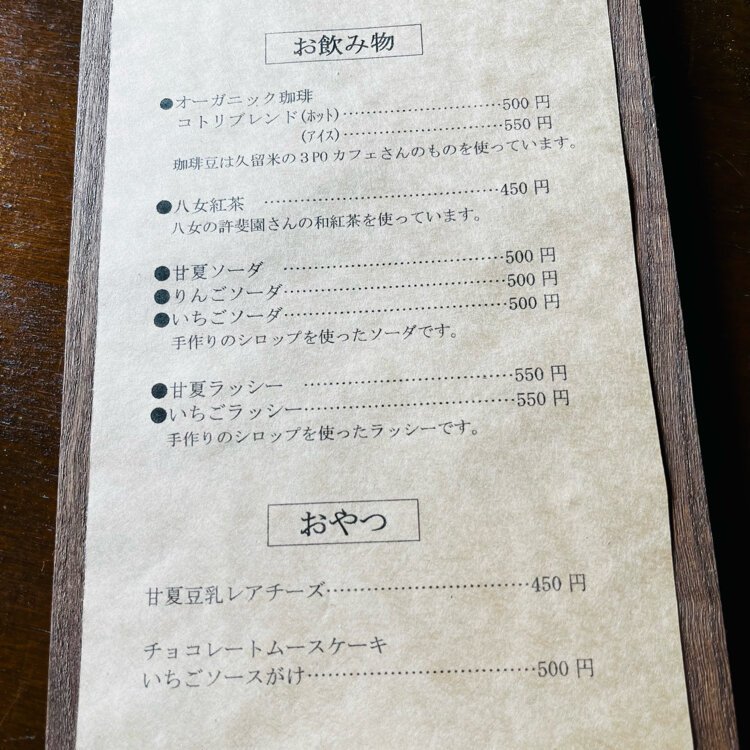 お飲み物
●オーガニック珈琲
コトリブレンド(ホット)……………………500円
(アイス)……………………550円
珈琲豆は久留米の3POカフェさんのものを使っています。
●八女紅茶 ………………………………450円
八女の許斐園さんの和紅茶を使っています。
●甘夏ソーダ ……………………………500円
●りんごソーダ……………………………500円
●いちごソーダ……………………………500円
手作りのシロップを使ったソーダです。
●甘夏ラッシー …………………………550円
●いちごラッシー…………………………550円
手作りのシロップを使ったラッシーです。
おやつ
甘夏豆乳レアチーズ…………………………450円
チョコレートムースケーキ
いちごソースがけ……………………………500円